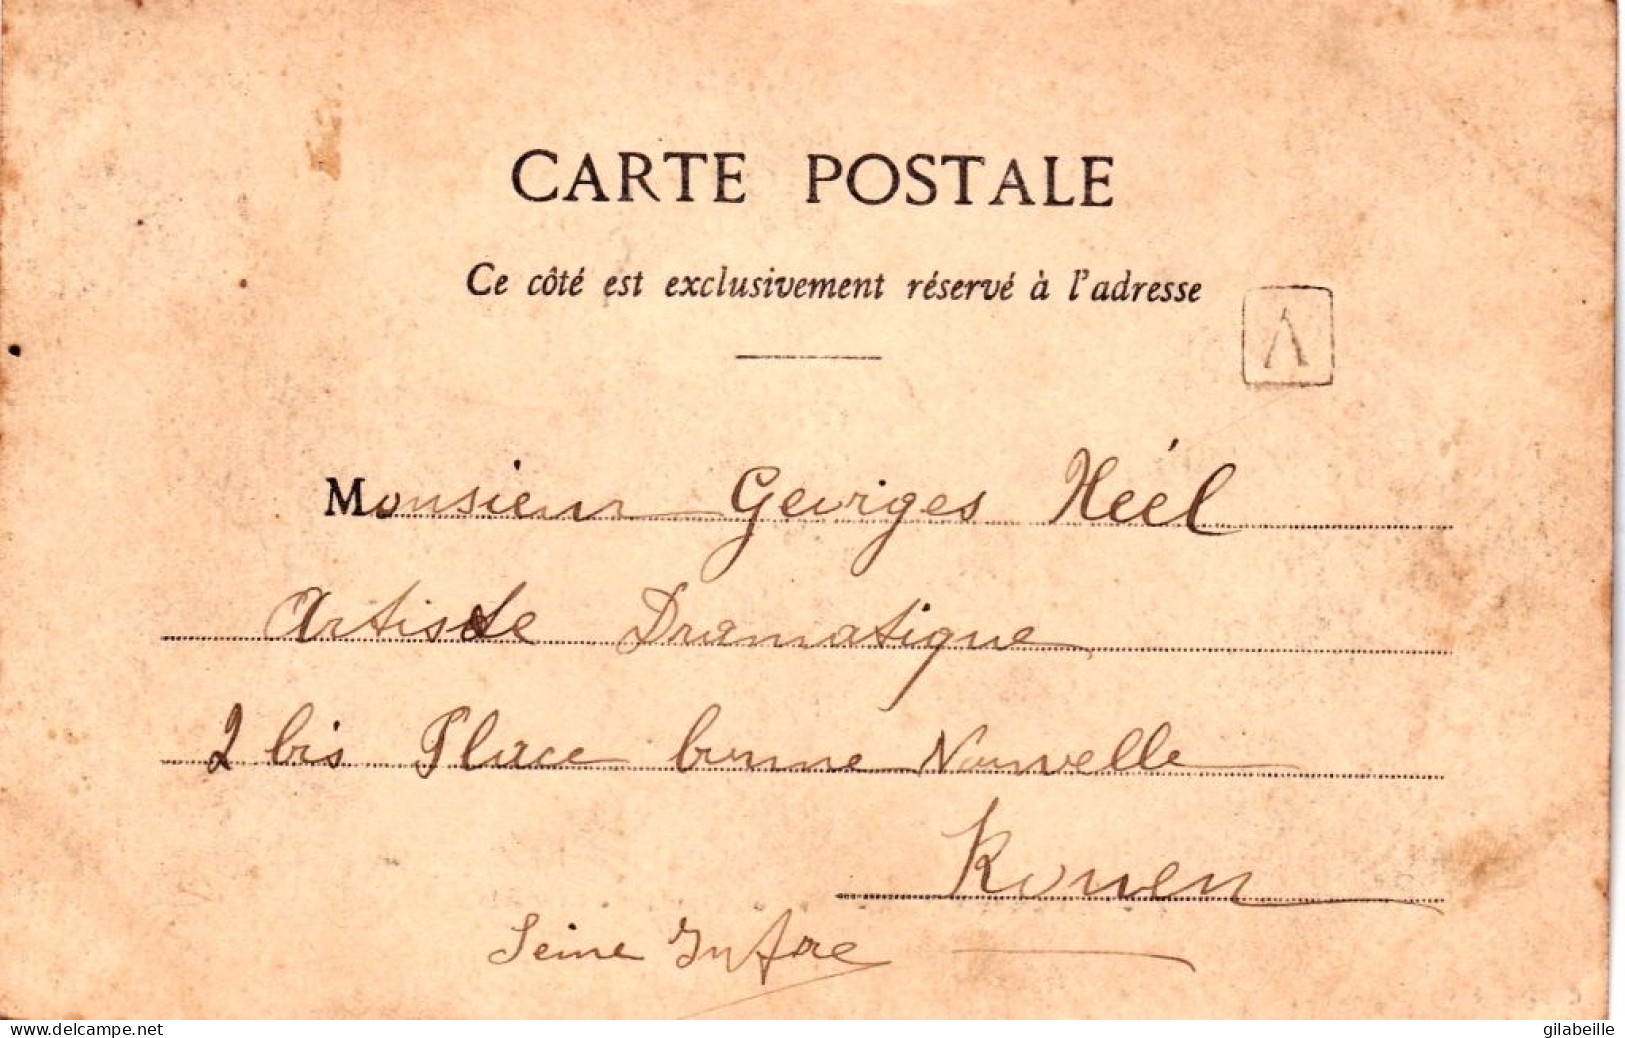 CARTE POSTALE
Ce côté est exclusivement réservé à l'adresse
V
Monsieur Georges Héél
Artiste Dramatique
2 bis Place bonne Nouvelle
Rouen
Seine Infre
www.delcampe.net
gilabeille